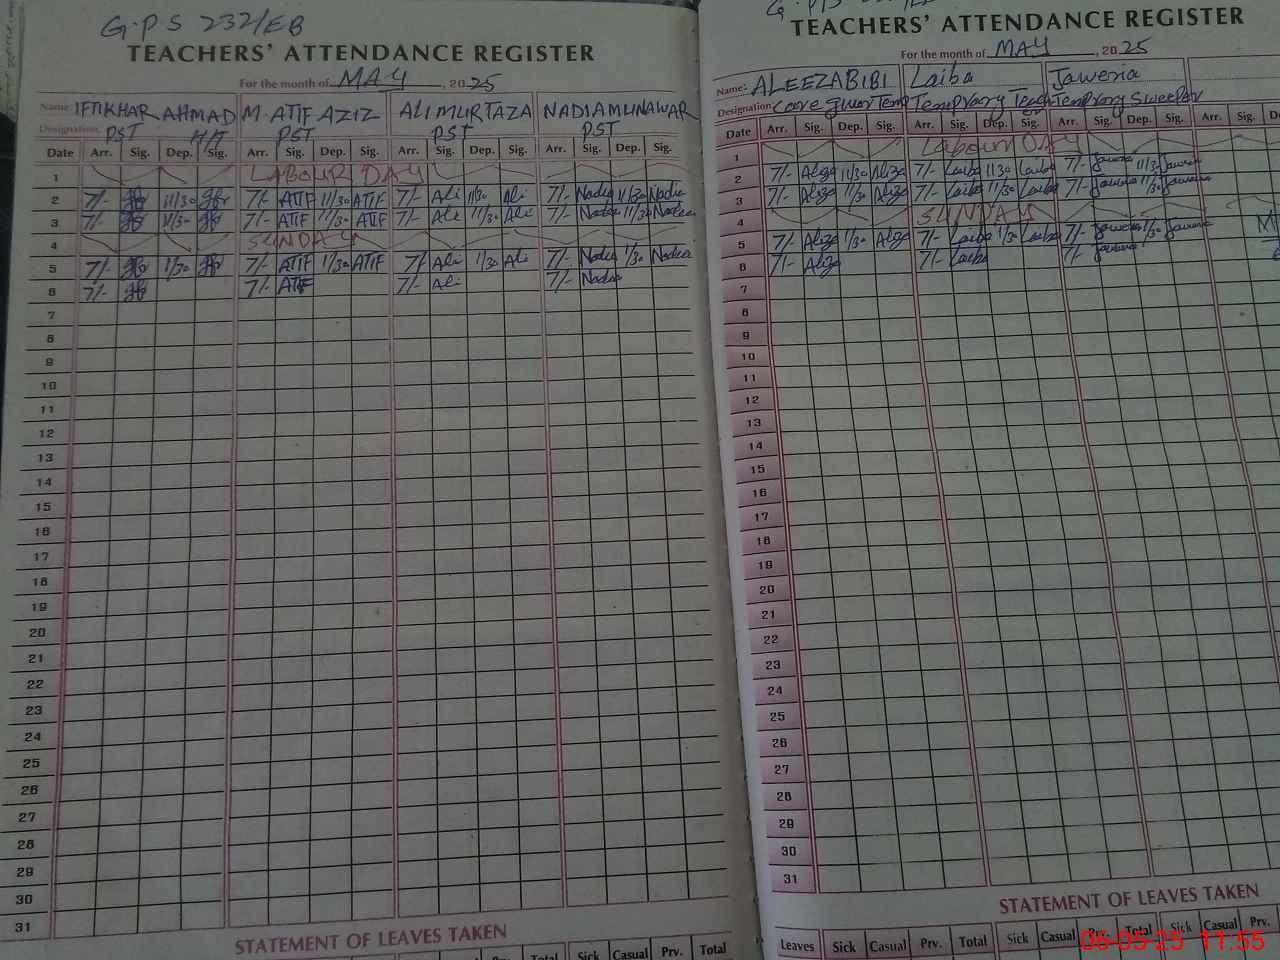 G.P.S 232/EB
TEACHERS' ATTENDANCE REGISTER
For the month of MAY, 2025
Name: IFTIKHAR AHMAD M. ATIF AZIZ ALI MURTAZA NADIA MUNAWAR
Designation: PST H/T PST PST PST
Date Arr. Sig. Dep. Sig. Arr. Sig. Dep. Sig. Arr. Sig. Dep. Sig. Arr. Sig. Dep. Sig.
1 LABOUR DAY
2 7/- 11/30 7/- ATIF 11/30 ATIF 7/- Ali 11/30 Ali 7/- Nadia 11/30 Nadia
3 7/- 11/30 7/- ATIF 11/30 ATIF 7/- Ali 11/30 Ali 7/- Nadia 11/30 Nadia
4 SUNDAY
5 7/- 1/30 7/- ATIF 1/30 ATIF 7/- Ali 1/30 Ali 7/- Nadia 1/30 Nadia
6 7/- 7/- ATIF 7/- Ali 7/- Nadia
7
8
9
10
11
12
13
14
15
16
17
18
19
20
21
22
23
24
25
26
27
28
29
30
31
STATEMENT OF LEAVES TAKEN
Sick Casual Prv. Total
G.P.S
TEACHERS' ATTENDANCE REGISTER
For the month of MAY, 2025
Name: ALEEZA BIBI Laiba Jaweria
Designation: Temprory Temprory Sweeper
Date Arr. Sig. Dep. Sig. Arr. Sig. Dep. Sig. Arr. Sig. Dep. Sig. Arr. Sig.
1 Labour DAY
2 7/- Aliza 11/30 Aliza 7/- Laiba 11/30 Laiba 7/- Jaweria 11/30 Jaweria
3 7/- Aliza 11/30 Aliza 7/- Laiba 11/30 Laiba 7/- Jaweria 11/30 Jaweria
4 SUNDAY
5 7/- Aliza 1/30 Aliza 7/- Laiba 1/30 Laiba 7/- Jaweria 1/30 Jaweria
6 7/- Aliza 7/- Laiba 7/- Jaweria
7
8
9
10
11
12
13
14
15
16
17
18
19
20
21
22
23
24
25
26
27
28
29
30
31
STATEMENT OF LEAVES TAKEN
Leaves Sick Casual Prv. Total Sick Casual Prv. Total Sick Casual Prv.
06-05-25 11:55